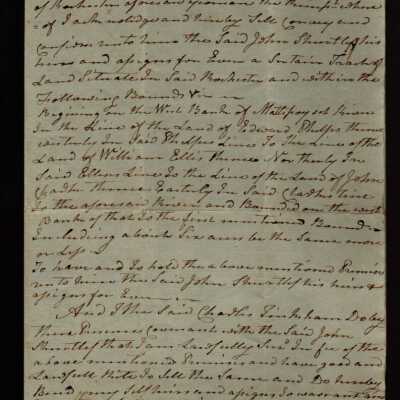 of Rochester aforesaid yeoman the Receipt where
of I acknowledge and hereby Sell Convey and
Confirm unto him the Said John Shurtlef his
heirs and assigns for Ever a Sertain Tract of
Land Situate In Said Rochester and within the
Following Bounds
Begining on the West Bank of Mattepoyset River
In the Line of the Land of Edward Phelps thence
westerly In Said Phelpses Line To the Line of the
Land of William Ellis thence Northerly In
Said Ellises Line To the Line of the Land of John
thence Easterly In Said line
To the aforesaid River and Bounded on the west
Bank of that To the first mentioned Bound
Including about Six acres be the Same more
or Less
To have and To hold the above mentioned Premises
unto him the Said John Shurtlef his heirs &
assigns for Ever
And I the Said Charles Tinkham Do by
these Presence Covenant with the Said John
Shurtlef that I am Lawfully in fee of the
above mentioned Premises and have good and
Lawfull Rite To Sell the Same and Do hereby
Bind my Self heirs and assigns To warrant